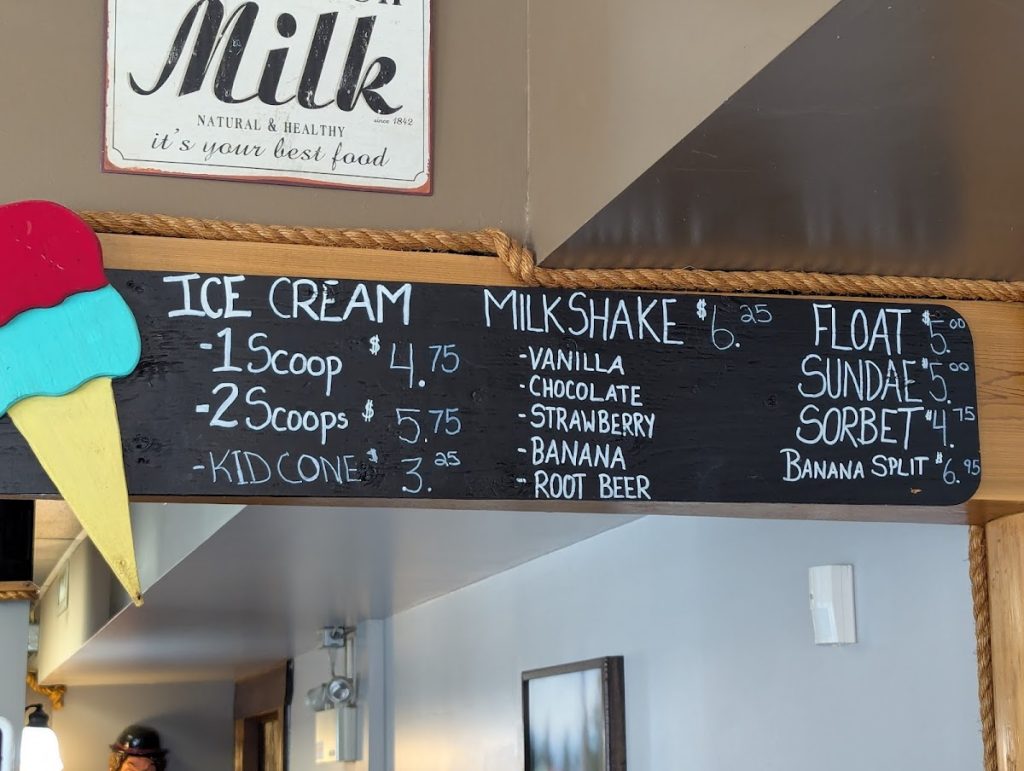 Milk
since 1842
NATURAL & HEALTHY
it's your best food
ICE CREAM
-1 Scoop $4.75
-2 Scoops $5.75
-KID CONE $3.25
MILKSHAKE $6.25
-VANILLA
-CHOCOLATE
-STRAWBERRY
-BANANA
-ROOT BEER
FLOAT $5.00
SUNDAE $5.00
SORBET $4.75
BANANA SPLIT $6.95